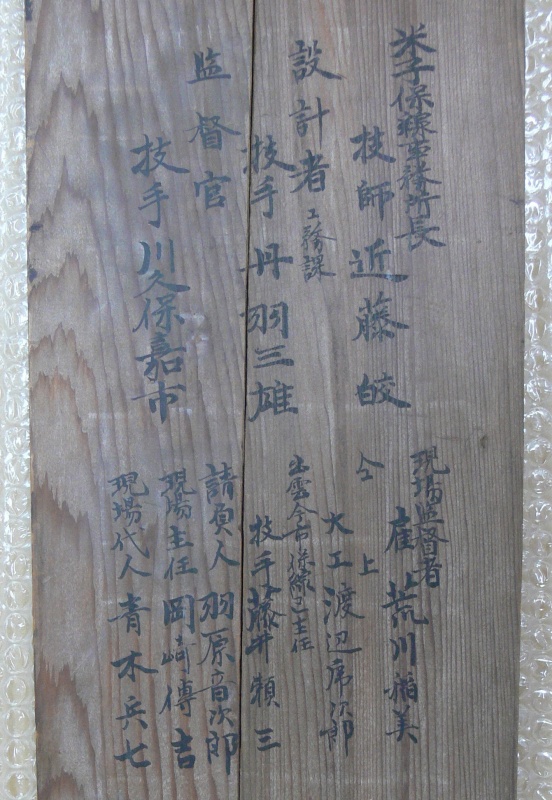 米子保線事務所長
技師 近藤 皎
設計者 工務課
技手 丹羽三雄
監督官
技手 川久保嘉市
現場監督者
雇 荒川 美
仝上
大工 渡辺 次郎
出雲今市保線区主任
技手 藤井瀬三
請負人 羽原音次郎
現場主任 岡崎傳吉
現場代人 青木兵七